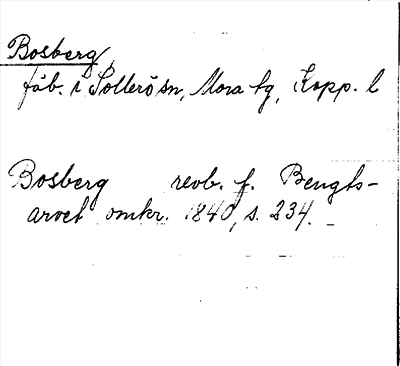 Bosberg,
fäb. i Sollerö sn, Mora tg, Kopp. l
Bosberg revb. f. Bengts-
arvet omkr. 1840, s. 234.